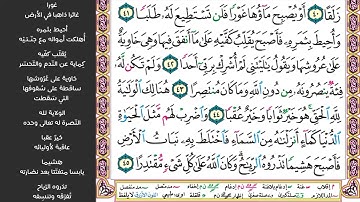 زَلَقًا ٤٠ أَوْ يُصْبِحَ مَآؤُهَا غَوْرًا فَلَن تَسْتَطِيعَ لَهُۥ طَلَبًا ٤١
وَأُحِيطَ بِثَمَرِهِۦ فَأَصْبَحَ يُقَلِّبُ كَفَّيْهِ عَلَىٰ مَآ أَنفَقَ فِيهَا وَهِىَ خَاوِيَةٌ
عَلَىٰ عُرُوشِهَا وَيَقُولُ يَٰلَيْتَنِى لَمْ أُشْرِكْ بِرَبِّىٓ أَحَدًا ٤٢ وَلَمْ تَكُن لَّهُۥ
فِئَةٌ يَنصُرُونَهُۥ مِن دُونِ ٱللَّهِ وَمَا كَانَ مُنتَصِرًا ٤٣ هُنَالِكَ ٱلْوَلَٰيَةُ
لِلَّهِ ٱلْحَقِّ هُوَ خَيْرٌ ثَوَابًا وَخَيْرٌ عُقْبًا ٤٤ وَٱضْرِبْ لَهُم مَّثَلَ ٱلْحَيَوٰةِ
ٱلدُّنْيَا كَمَآءٍ أَنزَلْنَٰهُ مِنَ ٱلسَّمَآءِ فَٱخْتَلَطَ بِهِۦ نَبَاتُ ٱلْأَرْضِ
فَأَصْبَحَ هَشِيمًا تَذْرُوهُ ٱلرِّيَٰحُ وَكَانَ ٱللَّهُ عَلَىٰ كُلِّ شَىْءٍ مُّقْتَدِرًا ٤٥
غورا
غائرا ذاهبا في الأرض
أحيط بثمره
أهلكت أمواله مع جنتيه
يقلب كفيه
كناية عن الندم والتحسر
خاوية على عروشها
ساقطة على سقوفها
التي سقطت
الولاية لله
النصرة له تعالى وحده
خير عقبا
عاقبة لأوليائه
هشيما
يابسا متفتتا بعد نضارته
تذروه الرياح
تفرقه وتنسفه